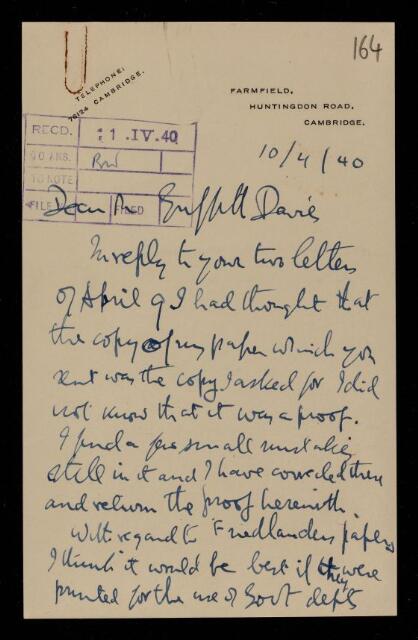 164
TELEPHONE:
76124 CAMBRIDGE.
FARMFIELD,
HUNTINGDON ROAD,
CAMBRIDGE.
RECD. 11.IV.40
NO ANS.
TO NOTE
FILE FILED
10/4/40
Dear Mr Griffith Davies
In reply to your two letters
of April 9 I had thought that
the copy of my paper which you
sent was the copy I asked for I did
not know that it was a proof.
I find a few small mistakes
still in it and I have corrected them
and return the proof herewith.
With regard to Friedlanders papers
I think it would be best if they were
printed for the use of Govt depts